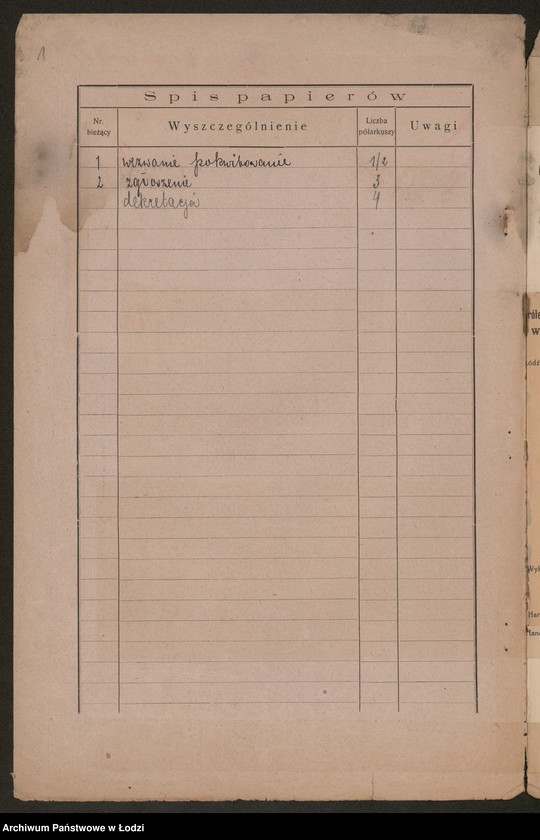 1
Spis papierów
Nr. bieżący Wyszczególnienie Liczba półarkuszy Uwagi
1 wezwanie pokwitowanie 1/2
2 zgłoszenie 3
dekretacja 4
Archiwum Państwowe w Łodzi